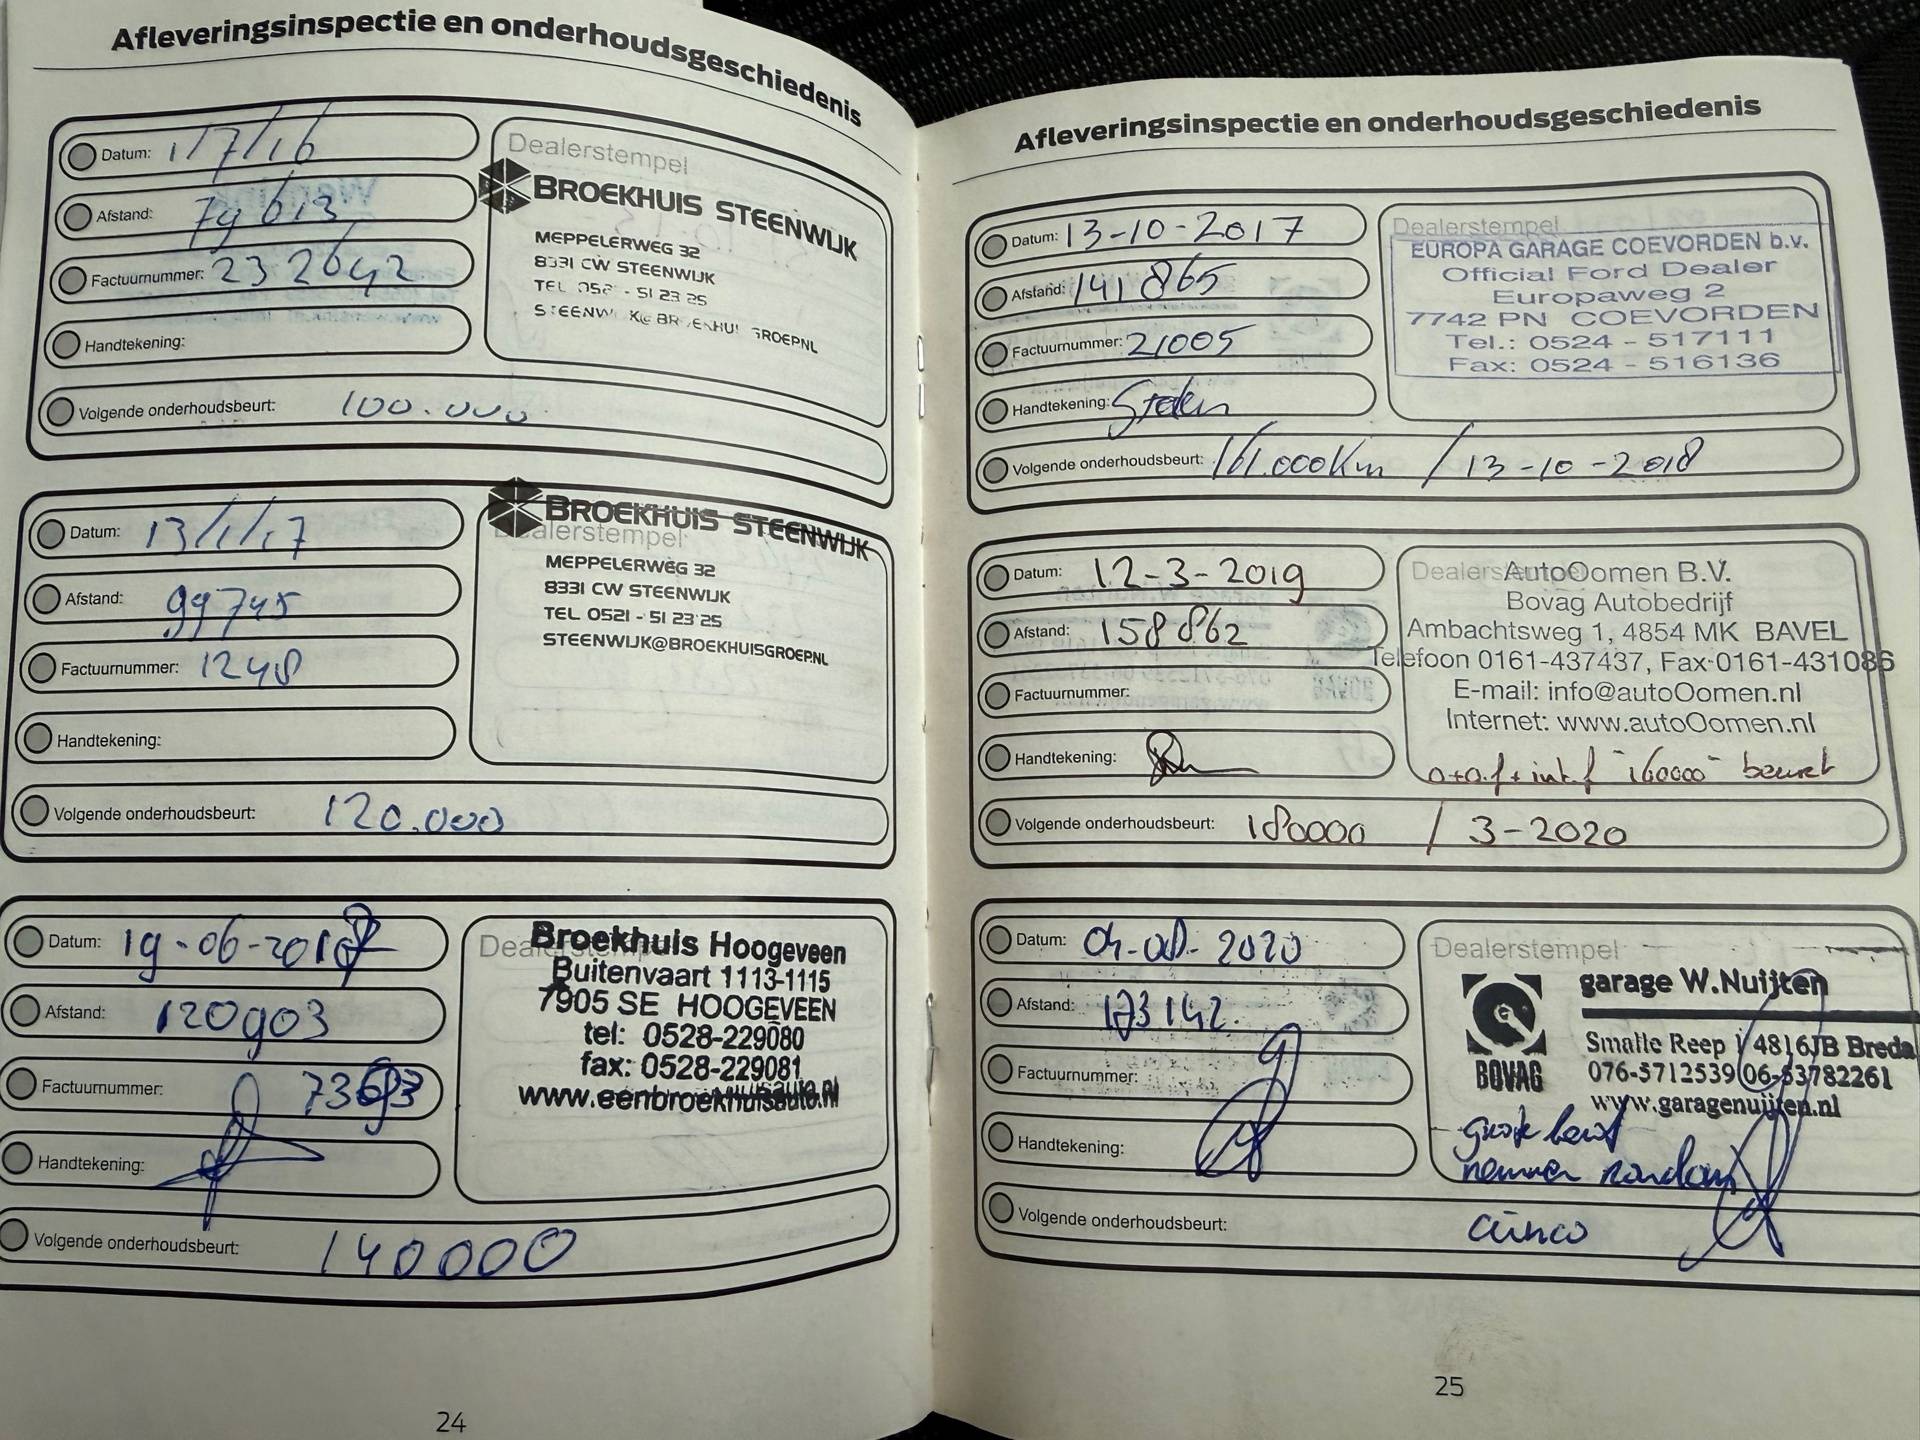 Afleveringsinspectie en onderhoudsgeschiedenis
Datum: 1/7/16
Afstand: 79613
Factuurnummer: 232642
Handtekening:
Volgende onderhoudsbeurt: 100.000
Dealerstempel
BROEKHUIS STEENWIJK
MEPPELERWEG 32
8331 CW STEENWIJK
TEL 052 - 51 23 25
Datum: 13/1/17
Afstand: 99745
Factuurnummer: 1248
Handtekening:
Volgende onderhoudsbeurt: 120.000
Dealerstempel
BROEKHUIS STEENWIJK
MEPPELERWEG 32
8331 CW STEENWIJK
TEL 0521 - 51 23 25
STEENWIJK@BROEKHUISGROEP.NL
Datum: 19-06-2017
Afstand: 120903
Factuurnummer:
Handtekening:
Volgende onderhoudsbeurt: 140000
Broekhuis Hoogeveen
Buitenvaart 1113-1115
7905 SE HOOGEVEEN
tel: 0528-229080
fax: 0528-229081
www.eenbroekhuisauto.nl
24
Afleveringsinspectie en onderhoudsgeschiedenis
Datum: 13-10-2017
Afstand: 141865
Factuurnummer: 21005
Handtekening:
Volgende onderhoudsbeurt: 161.000km / 13-10-2018
Dealerstempel
EUROPA GARAGE COEVORDEN b.v.
Official Ford Dealer
Europaweg 2
7742 PN COEVORDEN
Tel.: 0524 - 517111
Fax: 0524 - 516136
Datum: 12-3-2019
Afstand: 158862
Factuurnummer:
Handtekening:
Volgende onderhoudsbeurt: 180000 / 3-2020
Dealerstempel
AutoOomen B.V.
Bovag Autobedrijf
Ambachtsweg 1, 4854 MK BAVEL
Telefoon 0161-437437, Fax 0161-431086
E-mail: info@autoOomen.nl
Internet: www.autoOomen.nl
"160000" beurt
Datum: 04-08-2020
Afstand: 173142.
Factuurnummer:
Handtekening:
Volgende onderhoudsbeurt:
Dealerstempel
garage W.Nuijten
Smalle Reep 1 4816JB Breda
076-5712539 06-53782261
www.garagenuijten.nl
BOVAG
grote beurt
remmen rondom
25